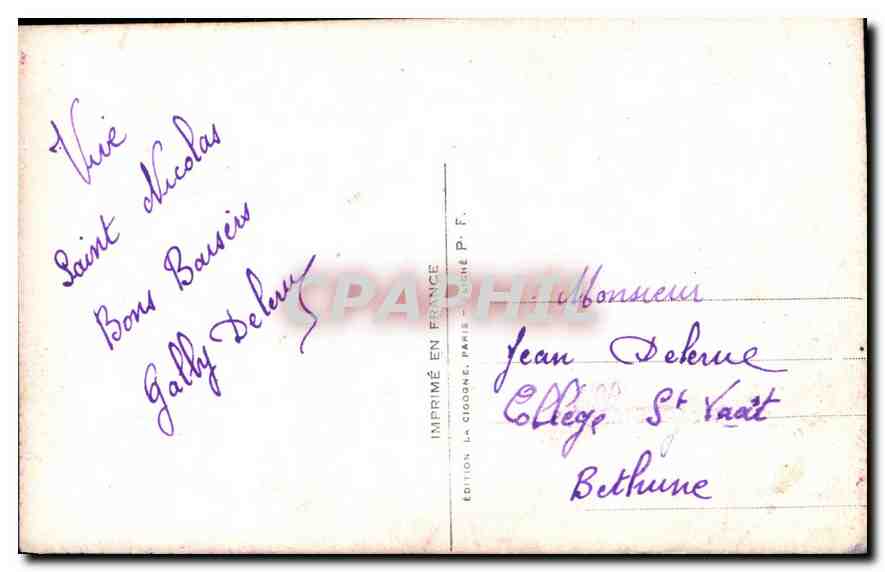 Vive
Saint Nicolas
Bons Baisers
Gabby Delerue
IMPRIMÉ EN FRANCE
ÉDITION LA CIGOGNE, PARIS — CLICHÉ P. F.
CPAPHIL
Monsieur
Jean Delerue
Collège St Vaast
Bethune